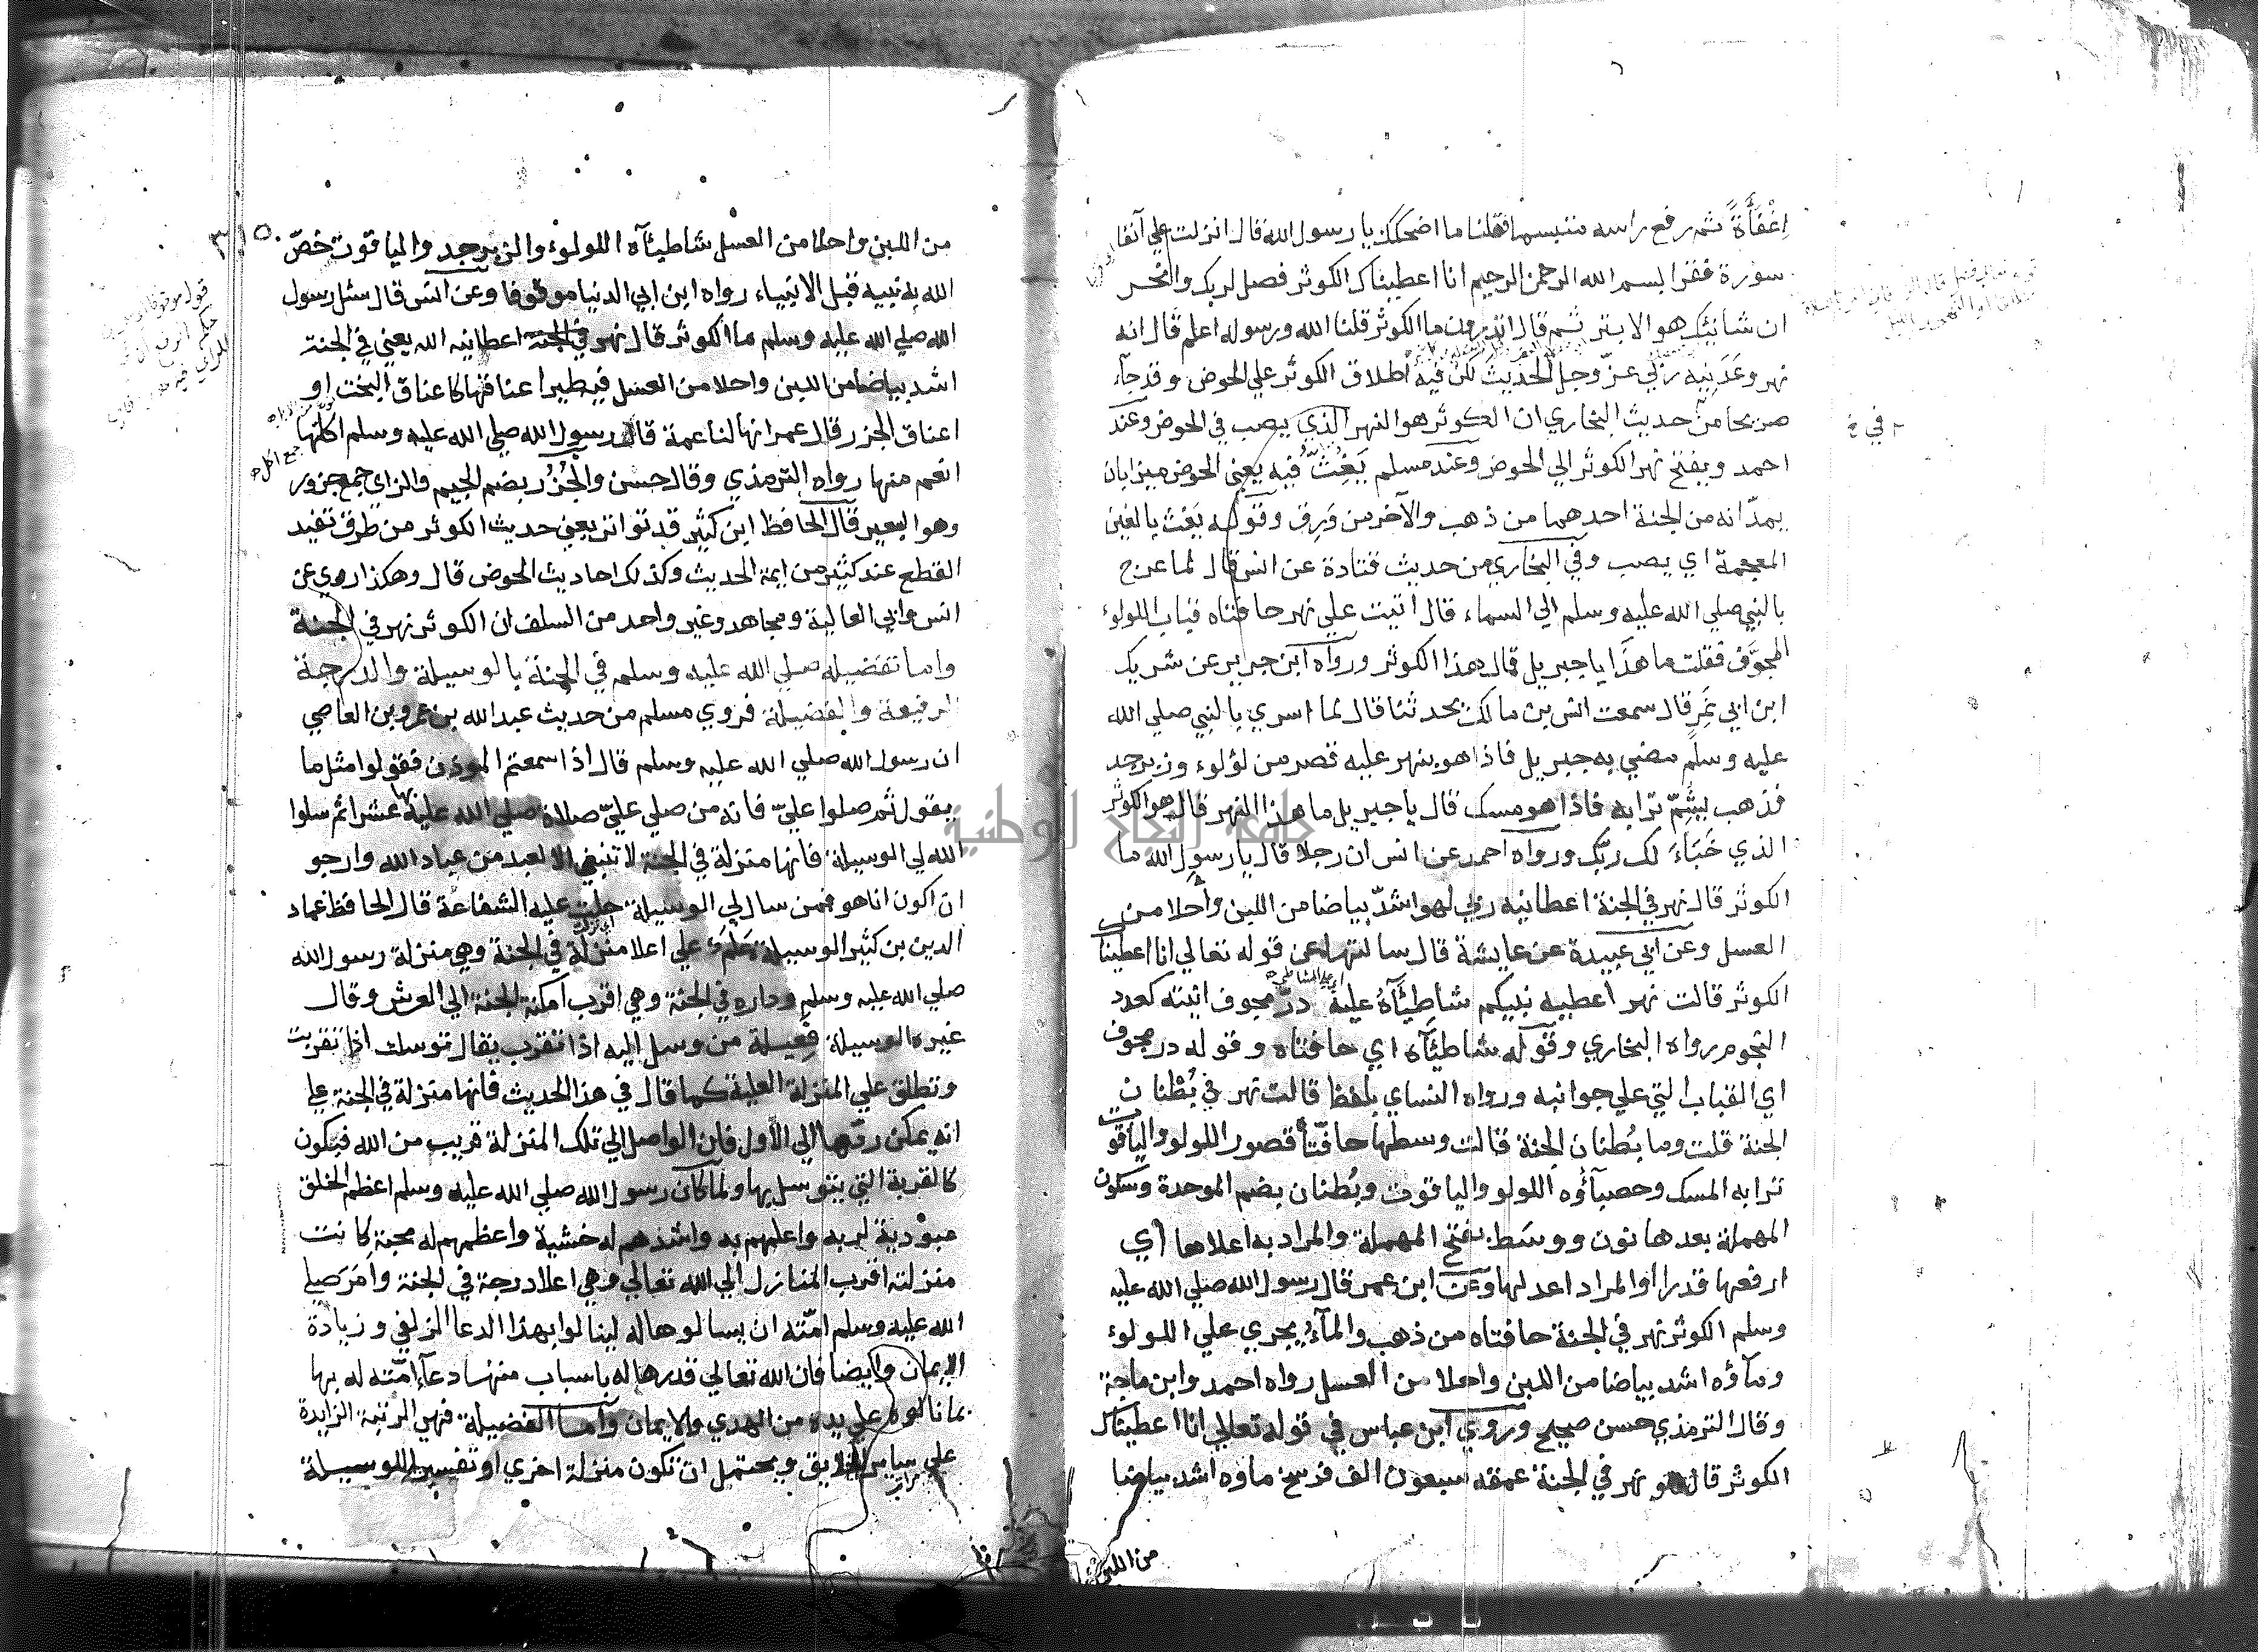 إغفأة ثم رفع راسه متبسما فقلنا ما اضحكك يا رسول الله قال انزلت علي آنفا
سورة فقرا بسم الله الرحمن الرحيم انا اعطيناك الكوثر فصل لربك وانحر
ان شانئك هو الابتر ثم قال اتدرون ما الكوثر قلنا الله ورسوله اعلم قال انه
نهر وعدنيه ربي عزّ وجل الحديث لكن فيه اطلاق الكوثر علي الحوض وقد جآء
صريحا من حديث البخاري ان الكوثر هو النهر الذي يصب في الحوض وعند
في خ
احمد ويفتح نهر الكوثر الي الحوض وعند مسلم يَغُثّ فيه يعني الحوض ميزابان
يمدّانه من الجنة احدهما من ذهب والآخر من وَرِق وقوله يغث بالغين
المعجمة اي يصب وفي البخاري من حديث قتادة عن انس قال لما عرج
بالنبي صلي الله عليه وسلم الي السماء قال اتيت علي نهر حافتاه قباب اللولوء
المجوَّف فقلت ما هذا يا جبريل قال هذا الكوثر ورواه ابن جرير عن شريك
ابن ابي نَمِر قال سمعت انس بن مالك يحدثنا قال لما اسري بالنبي صلي الله
عليه وسلم مضي به جبريل فاذا هو بنهر عليه قصر من لؤلوء وزبرجد
فذهب يشَمّ ترابه فاذا هو مسك قال يا جبريل ما هذا النهر قال هو الكوثر
الذي خَبَاءَ لك ربّك ورواه احمد عن انس ان رجلا قال يا رسول الله ما
الكوثر قال نهر في الجنة اعطانيه ربي لهو اشدّ بياضا من اللبن وأحلا من
العسل وعن ابي عبيدة عن عايشة قال سالتها عن قوله تعالي انا اعطيناك
الكوثر قالت نهر أعطيه نبيكم شاطِئآهُ عليه درّ مجوف انيته كعدد
النجوم رواه البخاري وقوله شاطئآه اي حافتاه وقوله در مجوف
اي القباب التي علي جوانبه ورواه النساي بلفظ قالت نهر في بُطْنان
الجنة قلت وما بُطنان الجنة قالت وسطها حافتأ قصور اللولو والياقوت
ترابه المسك وحصبآؤه اللولو والياقوت وبُطنان بضم الموحدة وسكون
المهملة بعدها نون ووسَط بفتح المهملة والمراد به اعلاها أي
ارفعها قدرا أوالمراد اعدلها وعن ابن عمر قال رسول الله صلي الله عليه
وسلم الكوثر نهر في الجنة حافتاه من ذهب والمآءُ يجري علي اللولوء
ومآؤه اشد بياضا من اللبن واحلا من العسل رواه احمد وابن ماجة
وقال الترمذي حسن صحيح وروي ابن عباس في قوله تعالي انا اعطيناك
الكوثر قال هو نهر في الجنة عمقه سبعون الف فرسخ ماوه اشد بياضا
من اللبن
من اللبن واحلا من العسل شاطيئآه اللولوء والزبرجد والياقوت خصّ
الله به نبيه قبل الانبياء رواه ابن ابي الدنيا موقوفا وعن انس قال سئل رسول
الله صلي الله عليه وسلم ما الكوثر قال نهر في الجنة اعطانيه الله يعني في الجنة
اشد بياضا من اللبن واحلا من العسل فيه طيرا عناقها كاعناق البخت او
اعناق الجزر قال عمر انها لناعمة قال رسول الله صلي الله عليه وسلم اكلتها
جمع اكل
انعم منها رواه الترمذي وقال حسن والجُزُر بضم الجيم والزاي جمع جزور
وهو البعير قال الحافظ ابن كثير قد تواتر يعني حديث الكوثر من طرق تفيد
القطع عند كثير من ايمة الحديث وكذلك احاديث الحوض قال وهكذا روي عن
انس وابي العالية ومجاهد وغير واحد من السلف ان الكوثر نهر في الجنة
واما تفضيله صلي الله عليه وسلم في الجنة بالوسيلة والدرجة
الرفيعة والفضيلة فروي مسلم من حديث عبد الله بن عمرو بن العاصي
ان رسول الله صلي الله عليه وسلم قال اذا سمعتم الموذن فقولوا مثل ما
يقول ثم صلوا عليّ فانه من صلي عليّ صلاة صلي الله عليه بها عشرا ثم سلوا
الله لي الوسيلة فانها منزلة في الجنة لا تنبغي الا لعبد من عباد الله وارجو
ان اكون انا هو فمن سال لي الوسيلة حلت عليه الشفاعة قال الحافظ عماد
الدين بن كثير الوسيلة عَلَم علي اعلا منزلة في الجنة وهي منزلة رسول الله
صلي الله عليه وسلم وداره في الجنة وهي اقرب امكنة الجنة الي العرش وقال
غيره الوسيلة فعيلة من وسل اليه اذا تقرب يقال توسلت اذا تقربت
وتطلق علي المنزلة العلية كما قال في هذا الحديث فانها منزلة في الجنة علي
انه يمكن ردّها الي الأول فان الواصل الي تلك المنزلة قريب من الله فيكون
كالقربة التي يتوسل بها ولما كان رسول الله صلي الله عليه وسلم اعظم الخلق
عبودية لربه واعلمهم به واشدهم له خشية واعظمهم له محبة كانت
منزلته اقرب المنازل الي الله تعالي وهي اعلا درجة في الجنة وأمَرَ صلي
الله عليه وسلم امّته ان يسالوها له لينالوا بهذا الدعا الزلفي وزيادة
الإيمان وايضا فان الله تعالي قدرها له باسباب منها دعآء امّته له بها
بما نالوه علي يده من الهدي والايمان وآمسا الفضيلة فهي الرتبة الزايدة
علي ساير الخلايق ويحتمل ان تكون منزلة اخري او تفسيرا للوسيلة
جامعة النجاح الوطنية